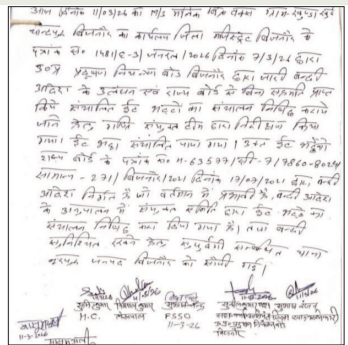 आज दिनांक 11/03/26 को M/S मलिक ब्रिक वर्क्स
चान्दपुर बिजनौर का कार्यालय जिला मजिस्ट्रेट बिजनौर के
पत्रांक सं० 1481/E-3/जनरल/2026 दिनांक 7/3/26 द्वारा
उ०प्र० प्रदूषण नियन्त्रण बोर्ड बिजनौर द्वारा जारी बन्दी
आदेश के उल्लंघन एवं राज्य बोर्ड से बिना सहमति प्राप्त
किये संचालित ईंट भट्टों का संचालन निषिद्ध कराये
जाने हेतु गठित संयुक्त टीम द्वारा निरीक्षण किया
गया। ईंट भट्ठा संचालित पाया गया। उक्त ईंट भट्ठे
राज्य बोर्ड के पत्रांक
271/बिजनौर/2021 दिनांक 17/07/2021 द्वारा बन्दी
आदेश निर्गत है जो वर्तमान में प्रभावी है, बन्दी आदेश
के अनुपालन में संयुक्त समिति द्वारा ईंट भट्ठे का
संचालन निषिद्ध करा दिया गया है। तथा बन्दी
सुनिश्चित रखने हेतु सुपुर्दगी सम्बन्धित थाना
नूरपुर जनपद बिजनौर को सौंपी गई।
11/3/26
H.C. लेखपाल FSSO
11-3-26
बिजनौर